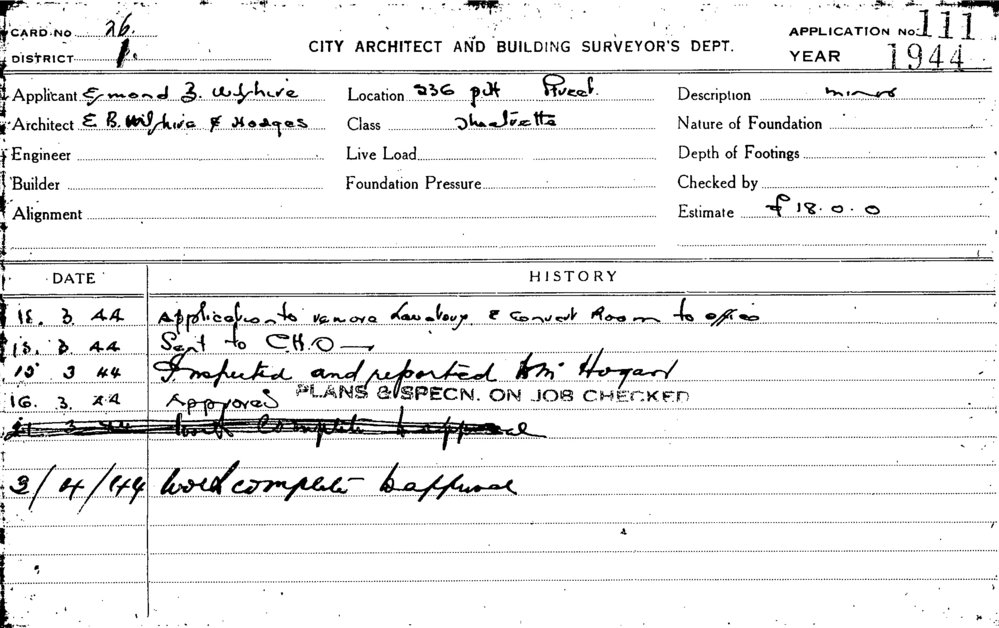 CARD NO 26.
DISTRICT 1.
CITY ARCHITECT AND BUILDING SURVEYOR'S DEPT.
APPLICATION No. 111
YEAR 1944
Applicant Emond B. Wilshire
Architect E. B. Wilshire & Hodges
Engineer
Builder
Alignment
Location 236 pitt Street.
Class Theatrette
Live Load
Foundation Pressure
Description minor
Nature of Foundation
Depth of Footings
Checked by
Estimate £18.0.0
DATE HISTORY
3. 44 Application to remove Lavatory & convert Room to office
3. 44 Sent to C.H.O
15 3 44 Inspected and reported Hogan
16. 3. 44 Approved PLANS & SPECN. ON JOB CHECKED
3 44 Work Complete to approval
3/4/44 Work complete to approval